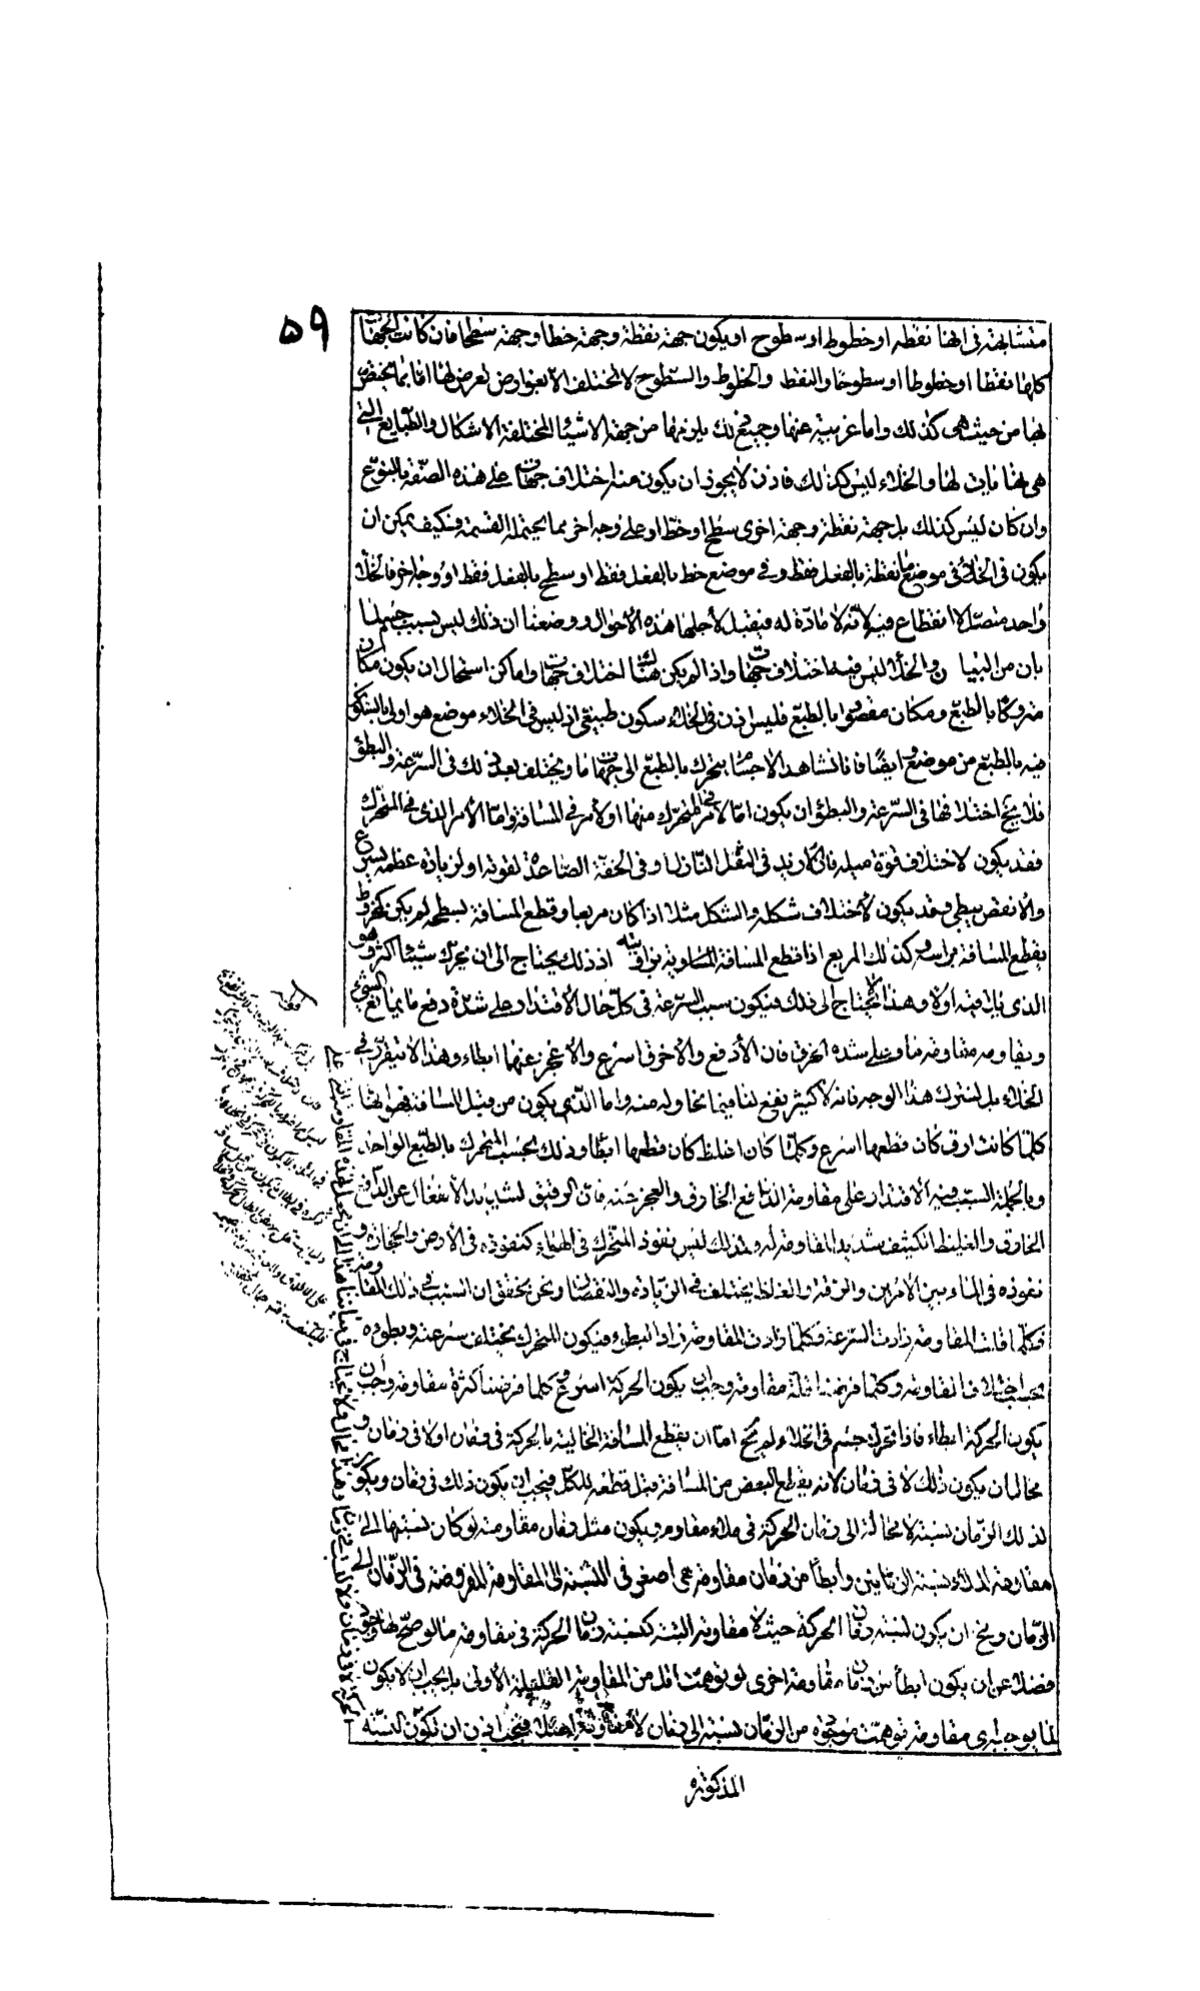 ۵۹
متشابهة فى انها نقطه او خطوط او سطوح او يكون جهة نقطة وجهة خطا وجهة سطحا فان كانت الجهتا
كلها نقطا او خطوطا او سطوحا والنقط والخطوط والسطوح لا تختلف الا بعوارض تعرض لها اما بما يختص
لها من حيث هى كذلك واما غريبة عنها وجميع ذلك يلزمها من جهة الاشيا المختلفة الاشكال والطبايع التى
هى نهايات لها والخلاء ليس كذلك فاذن لا يجوز ان يكون منه اختلاف جهات على هذه الصفة بالنوع
وان كان ليس كذلك بل جهة نقطة وجهة اخرى سطح او خط او على وجه اخر مما يحتمله القسمة فكيف يمكن ان
يكون فى الخلا فى موضع ما نقطة بالفعل فقط وفى موضع خط بالفعل فقط او سطح بالفعل فقط او وجه اخر فالخلا
واحد متصل لا انقطاع فيه لانه لا مادة له فيقبل لأجلها هذه الاحوال ووضعنا ان ذلك ليس بسبب جسم لما
بان من البيان والخلأ ليس فيه اختلاف جهات واذا لم يكن هناك اختلاف جهات واماكن استحال ان يكون مكان
متروكا بالطبع ومكان مقصودا بالطبع فليس اذن فى الخلاء سكون طبيعى اذ ليس فى الخلاء موضع هو اولى بالسكون
فيه بالطبع من موضع وايضا فانا نشاهد الاجسام يتحرك بالطبع الى جهات ما ويختلف بعد ذلك فى السرعة والبطؤ
فلا يخ اختلافها فى السرعة والبطؤ ان يكون اما لامر فى المتحرك منها او لأمر فى المسافة واما الأمر الذى فى المتحرك
فقد يكون لاختلاف قوة ميله فان الازيد فى الثقل النازل او فى الخفة الصاعدة لقوته او لزيادة عظمه يسرع
والانقص يبطى وقد يكون لاختلاف شكله والشكل مثلا اذا كان مربعا وقطع المسافة بسطحه لم يكن كمخروط
يقطع المسافة براسه وكذلك المربع اذا قطع المسافة المساوية بزاويته اذ ذلك يحتاج الى ان يحرك شيئا اكثر وهو
الذى يلاقيه اولا وهذا لا يحتاج الى ذلك فيكون سبب السرعة فى كل حال الاقتدار على شدة دفع ما يمانع الشيء
ويقاومه مقاومة ما وعلى شده الخرق فان الأدفع والاخرق اسرع والاعجز عنهما ابطاء وهذا لا يتقرر فى
الخلاء بل لنترك هذا الوجه فانه لا كثير نفع لنا فيما نحاوله منه واما الذى يكون من قبل المسافة فهو انها
كلما كانت ارق كان قطعها اسرع وكلما كان اغلظ كان قطعها ابطا وذلك بحسب المتحرك بالطبع الواحد
وبالجملة السبب فيه الاقتدار على مقاومة الدافع الخارق والعجز عنه فان الرقيق لشديد الانفعال عن الدافع
الخارق والغليظ الكثيف شديد المقاومة له ولذلك ليس نفوذ المتحرك فى الهواء كنفوذه فى الأرض والحجارة و
نفوذه فى الماء بين الامرين والرقة والغلظ يختلف فى الزيادة والنقصان ونحن نتحقق ان السبب فى ذلك المقاومة
فكلما قلت المقاومة زادت السرعة وكلما زادت المقاومة زاد البطوء فيكون المتحرك يختلف سرعته وبطوءه
بحسب اختلاف المقاومة وكلما فرضنا قلة مقاومة وجب ان يكون الحركة اسرع وكلما فرضنا كثرة مقاومة وجب ان
يكون الحركة ابطاء فاذا تحرك جسم فى الخلاء لم يخ اما ان يقطع المسافة الخالية بالحركة فى زمان اولا فى زمان و
محال ان يكون ذلك لا فى زمان لانه يقطع البعض من المسافة قبل قطعه للكل فيجب ان يكون ذلك فى زمان ويكون
لذلك الزمان نسبة لا محالة الى زمان الحركة فى ملاء مقاوم ويكون مثل زمان مقاومة لو كان نسبتها الى
مقاومة الملاء نسبة الزمانين وابطأ من زمان مقاومة هى اصغر فى النسبة الى المقاومة المفروضة فى الزمان الى
الزمان ويخ ان يكون نسبة زمان الحركة حيث لا مقاومة البتة كنسبة زمان الحركة فى مقاومة ما لو صح لها وجود
فضلا عن ان يكون ابطأ من زمان مقاومة اخرى لو توهمت اقل من المقاومة القليلة الأولى بل يجب ان لا يكون
لما يوجبه اى مقاومة توهمت موجودة من الزمان نسبة الى زمان لا مقاومة اصلا فيجب اذن ان تكون النسبة
المذكوره